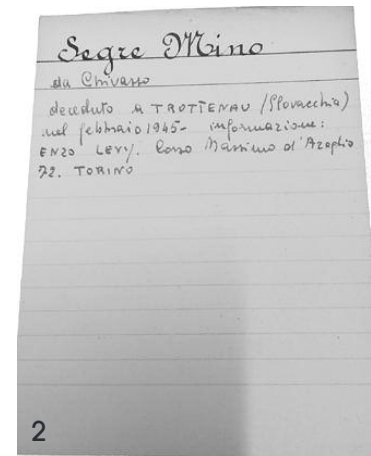 Segre Mino
da Chivasso
deceduto A TROTTENAU (Slovacchia)
nel febbraio 1945- informazione:
ENZO LEVY. Corso Massimo d'Azeglio
72. TORINO
2